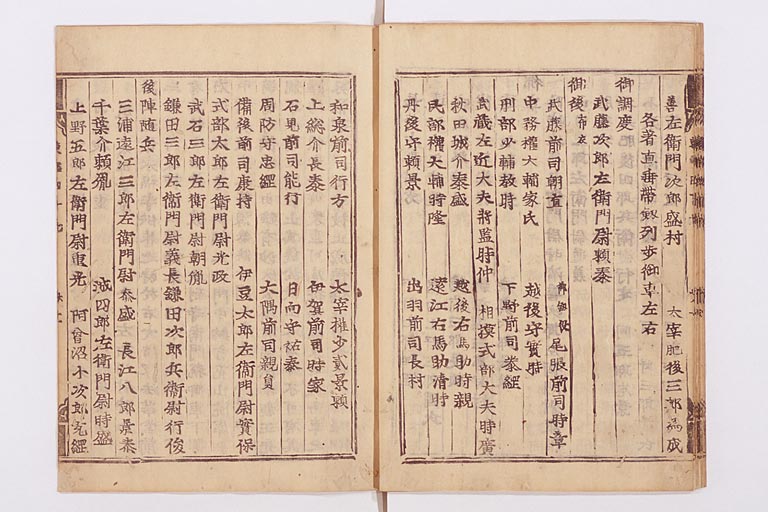 善左衛門次郎盛村　太宰肥後三郎為成
各著直垂帯劔列歩御車左右
御調度
武藤次郎左衛門尉頼泰
御後布衣
武藤前司朝直　尾張前司時章
中務權大輔家氏　越後守實時
刑部少輔教時　下野前司泰經
武蔵左近大夫將監時仲　相摸式部大夫時廣
秋田城介泰盛　越後右馬助時親
民部權大輔時隆　遠江右馬助清時
丹後守頼景　出羽前司長村
和泉前司行方　太宰權少貳景頼
上総介長泰　伊賀前司時家
石見前司能行　日向守祐泰
周防守忠經　大隅前司親員
備後前司康持　伊豆太郎左衛門尉實保
式部太郎左衛門尉光政
武石三郎左衛門尉朝胤
鎌田三郎左衛門尉義長鎌田次郎兵衛尉行俊
後陣随兵
三浦遠江三郎左衛門尉泰盛　長江八郎景泰
千葉介頼胤　城四郎左衛門尉時盛
上野五郎左衛門尉重光　阿曾沼小次郎光經